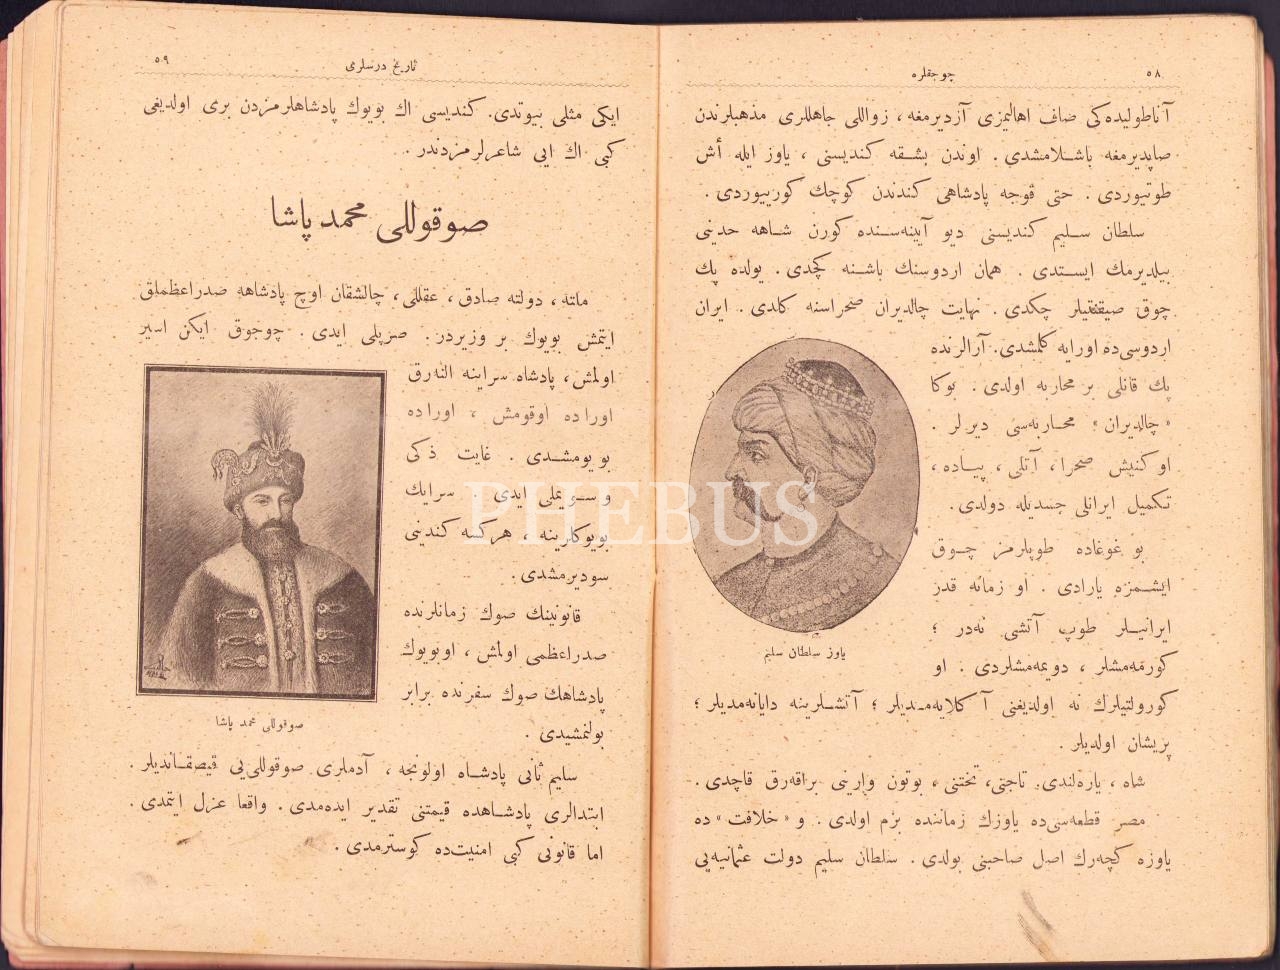 ٥٨
چوجقلره
آناطولیده‌کی صاف اهالیمزی آزدیرمغه، زواللی جاهللری مذهبلرندن
صاپدیرمغه باشلامشدی. اوندن بشقه کندیسنی، یاوز ایله أش
طوتیوردی. حتی قوجه پادشاهی کندندن کوچك کورییوردی.
سلطان سلیم کندیسنی دیو آیینه‌سنده کورن شاهه حدینی
بیلدیرمك ایستدی. همان اردوسنك باشنه کچدی. یولده پك
چوق صیقنتیلر چکدی. نهایت چالدیران صحراسنه کلدی. ایران
اردوسی‌ده اورایه کلمشدی. آرالرنده
پك قانلی بر محاربه اولدی. بوکا
«چالدیران» محاربه‌سی دیرلر.
اوکنیش صحرا، آتلی، پیاده،
تکمیل ایرانلی جسدیله دولدی.
بو غوغاده طوپلرمز چوق
ایشمزه یارادی. او زمانه قدر
ایرانیلر طوپ آتشی نه‌در؛
کورمه‌مشلر، دویمه‌مشلردی. او
یاوز سلطان سلیم
کورولتیلرك نه اولدیغنی آکلایه‌مدیلر؛ آتشلرینه دایانه‌مدیلر؛
پریشان اولدیلر.
شاه، یاره‌لندی. تاجنی، تختنی، بوتون وارینی براقه‌رق قاچدی.
مصر قطعه‌سی‌ده یاوزك زماننده بزم اولدی. و «خلافت» ده
یاوزه کچه‌رك اصل صاحبنی بولدی. سلطان سلیم دولت عثمانیه‌یی
٥٩
تاریخ درسلرمی
ایکی مثلی بیوتدی. کندیسی اك بویوك پادشاهلرمزدن بری اولدیغی
کبی اك ایی شاعرلرمزدندر.
صوقوللی محمد پاشا
ملته، دولته صادق، عقللی، چالشقان اوچ پادشاهه صدراعظملق
ایتمش بویوك بر وزیردر. صربلی ایدی. چوجوق ایکن اسیر
اولمش، پادشاه سراینه النه‌رق
اوراده اوقومش، اوراده
بویومشدی. غایت ذکی
و سویملی ایدی. سرایك
بویوکلرینه، هرکسه کندینی
سودیرمشدی.
قانونینك صوك زمانلرنده
صدراعظمی اولمش، اوبویوك
پادشاهك صوك سفرنده برابر
بولنمشیدی.
صوقوللی محمد پاشا
سلیم ثانی پادشاه اولونجه، آدملری صوقوللی‌یی قیصقاندیلر.
ابتدالری پادشاهده قیمتنی تقدیر ایده‌مدی. واقعا عزل ایتمدی.
اما قانونی کبی امنیت‌ده کوسترمدی.
PHEBUS